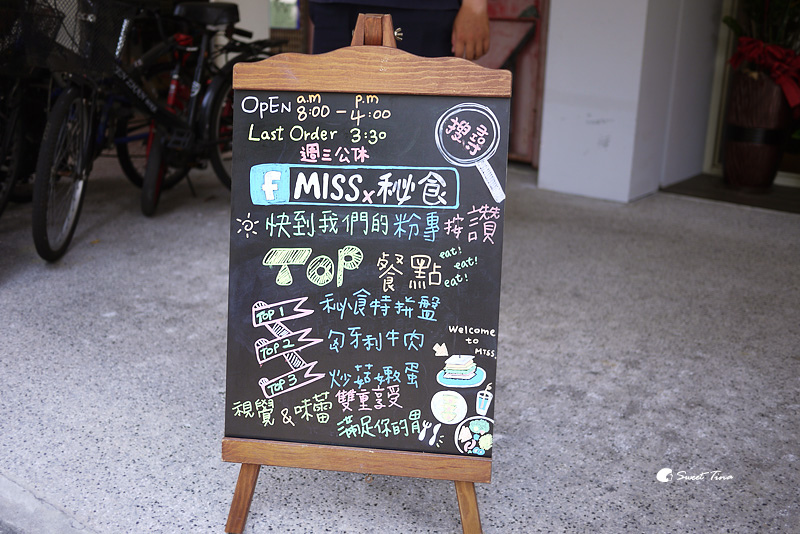 OPEN a.m 8:00 - p.m 4:00
Last Order 3:30
週三公休
搜尋
f MISS x 秘食
快到我們的粉專按讚
TOP 餐點 eat! eat! eat!
TOP 1 秘食特拼盤
TOP 2 匈牙利牛肉
TOP 3 炒菇嫩蛋
Welcome
to
MISS.
視覺 & 味蕾 雙重享受
滿足你的胃
Sweet Tina